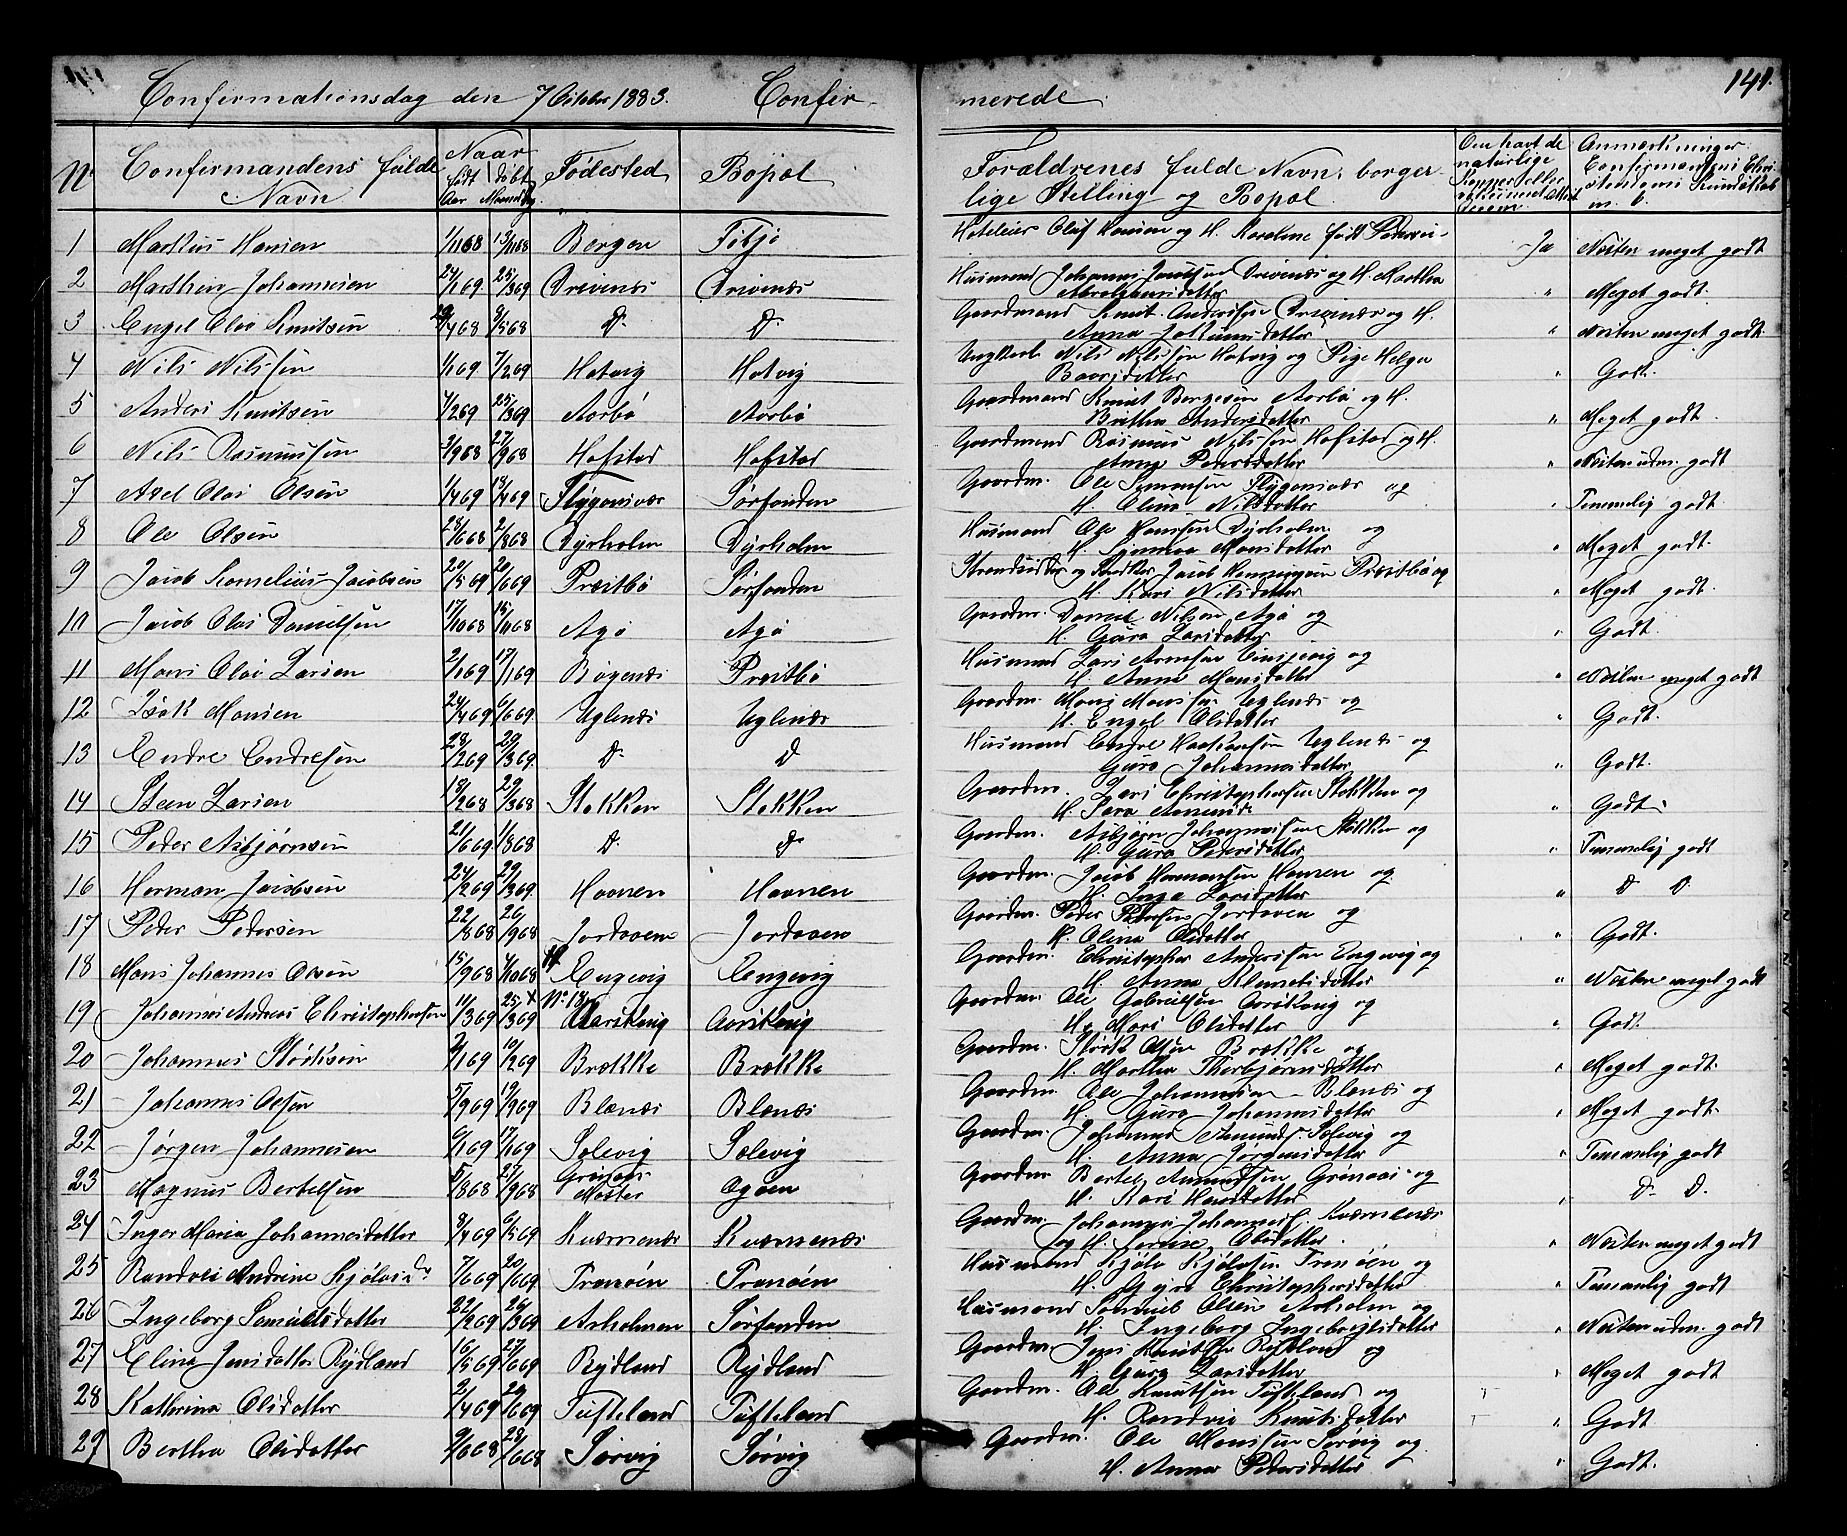 Confirmationsdag den 7 October 1883. Confir-
merede 141.
No. Confirmandens fulde Navn Naar født Aar døbt Maaned Dag Fødested Bopæl
Forældrenes fulde Navn, borger-
lige Stilling og Bopæl.
Om havt de naturlige Kopper eller
Anmærkninger. Confirmandens Christendoms Kundskab m. v.
1 Markus Hansen 1/11 68 13/11 68 Bergen Tibjø Hoteleier Oluf Hansen og H. Karoline født Ja Næsten meget godt
2 Marthin Johannesen 24/1 69 25/3 69 Drivenæs Drivenæs Husmand Johannes Drivenæs og H. Martha " Meget godt.
3 Engel Olai Knutsen 29/4 68 9/5 68 D. D. Gaardmand Knut Andersen Drivenæs og H. Anna " Næsten meget godt.
4 Nils Nilssen 1/1 69 7/2 69 Hotvig Hotvig Ungkarl Nils Nilssen Hotvig og Pige Helga Baarsdotter " Godt.
5 Anders Knutsen 4/2 69 25/3 69 Aarbø Aarbø Gaardmand Knut Børgesen Aarbø og H. Brithe Andersdotter " Meget godt.
6 Nils Rasmussen 3/9 68 27/9 68 Hofstad Hofstad Gaardmand Rasmus Nilssen Hofstad og H. Anna Pedersdotter " Næsten udm. godt
7 Axel Olai Olsen 1/4 69 18/4 69 Flygansvær Sørfonden Gaardm. Ole Simonsen Flygansvær og H. Elina Nilsdotter " Temmelig godt
8 Ole Olsen 28/6 68 2/8 68 Dyrholm Dyrholm Husmand Ole Hansen Dyrholm og H. Monsdotter " Meget godt.
9 Jacob Kornelius Jacobsen 20/5 69 20/6 69 Præstbø Sørfonden Strandsidder og Jacob Henningsen Præstbø og H. Kari Nilsdotter " Meget godt.
10 Jacob Olai Danielsen 17/10 68 15/11 68 Agø Agø Gaardm. Daniel Nilsen Agø og H. Gura Larsdotter " Godt.
11 Mons Olai Larsen 2/1 69 17/1 69 Bøgenæs Præstbø Husmand Lars Arnesen og H. Anna Monsdotter " Næsten meget godt
12 Isak Monsen 24/4 69 6/6 69 Uglenæs Uglenæs Gaardm. Mons Monsen Uglenæs og H. Engel Olsdotter " Godt.
13 Endre Endresen 28/2 69 29/3 69 D. D Husmand Endre Haakonsen Uglenæs og Gura Johannesdotter " Godt.
14 Steen Larsen 18/2 68 29/3 68 Stokken Stokken Gaardm. Lars Christophersen Stokken og H. Sara " Godt.
15 Peder Asbjørnsen 21/6 69 1/8 68 D. D. Gaardm. Asbjørn Johannessen Stokken og H. Gura Pedersdotter " Temmelig godt
16 Herman Jacobsen 24/2 69 29/3 69 Havnen Havnen Gaardm. Jacob Hermansen Havnen og H. Inga Larsdotter " D D.
17 Peder Pedersen 22/8 68 20/9 68 Jordaven Jordaven Gaardm. Peder Pedersen Jordaven og H. Olina Olsdotter " Godt.
18 Mons Johannes Olsen 15/9 68 4/10 68 Engevig Engevig Gaardm. Christopher Andersen Engevig og H. Anna Klemetsdotter " Næsten meget godt
19 Johannes Andreas Christophersen 11/3 69 25/3 69 X No. 18 Aarskvig Aarskvig Gaardm. Ole Gabrielsen Aarskvig og H. Mari Olsdotter " Godt.
20 Johannes Størksen 2/1 69 10/2 69 Brække Brække Gaardm. Størk Olsen Brække og H. Martha Thorbjørnsdotter " Meget godt.
21 Johannes Olsen 5/9 69 19/9 69 Blænæs Blænæs Gaardm. Ole Johannessen Blænæs og H. Gura Johannesdotter " Meget godt.
22 Jørgen Johannesen 6/1 69 17/1 69 Solevig Solevig Gaardm. Johannes Amunds. Solevig og H. Anna Jørgensdotter " Temmelig godt
23 Magnus Bertelsen 5/8 68 27/9 68 Møster Ogøen Gaardm. Bertel Amundsen og H. Kari Hansdotter " D. D.
24 Inger Maria Johannesdotter 8/4 69 6/5 69 Kværnenæs Kværnenæs Gaardm. Johannes Johannes. Kværnenæs og H. Olsdotter. " Næsten meget godt
25 Randvei Andrine Kjølvisdr. 7/6 69 20/6 69 Tranøen Tranøen Husmand Kjølv Kjølvsen Tranøen og H. Christophersdotter " Temmelig godt
26 Ingeborg Samuelsdotter 22/2 69 26/3 69 Arholmen Sørfonden Husmand Samuel Olsen Arholm og H. Ingeborg Ingebrigtsdotter " Næsten udm. godt
27 Elina Jensdotter Rydland 16/5 69 27/6 69 Rydland Rydland Gaardm. Jens Knutsen Rydland og H. Gura Larsdotter " Meget godt
28 Kathrina Olsdotter 2/4 69 20/6 69 Tufteland Tufteland Gaardm. Ole Knutsen Tufteland og H. Randvei Knutsdotter " Godt
29 Bertha Olsdotter 9/6 68 28/6 68 Sørvig Sørvig Gaardm. Ole Monssen Sørvig og H. Anna Pedersdotter " Godt.